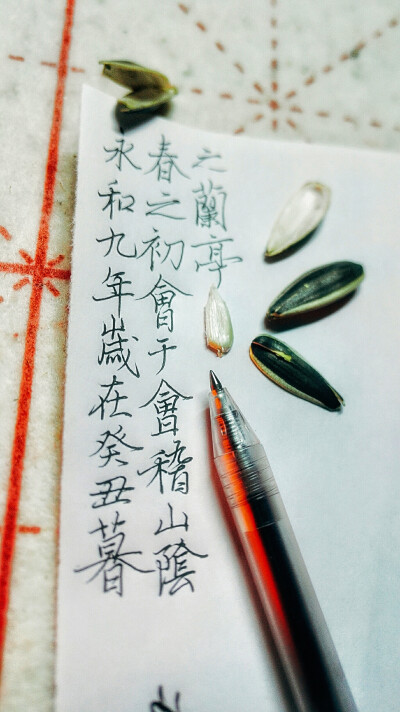 永和九年歲在癸丑暮
春之初會于會稽山陰
之蘭亭